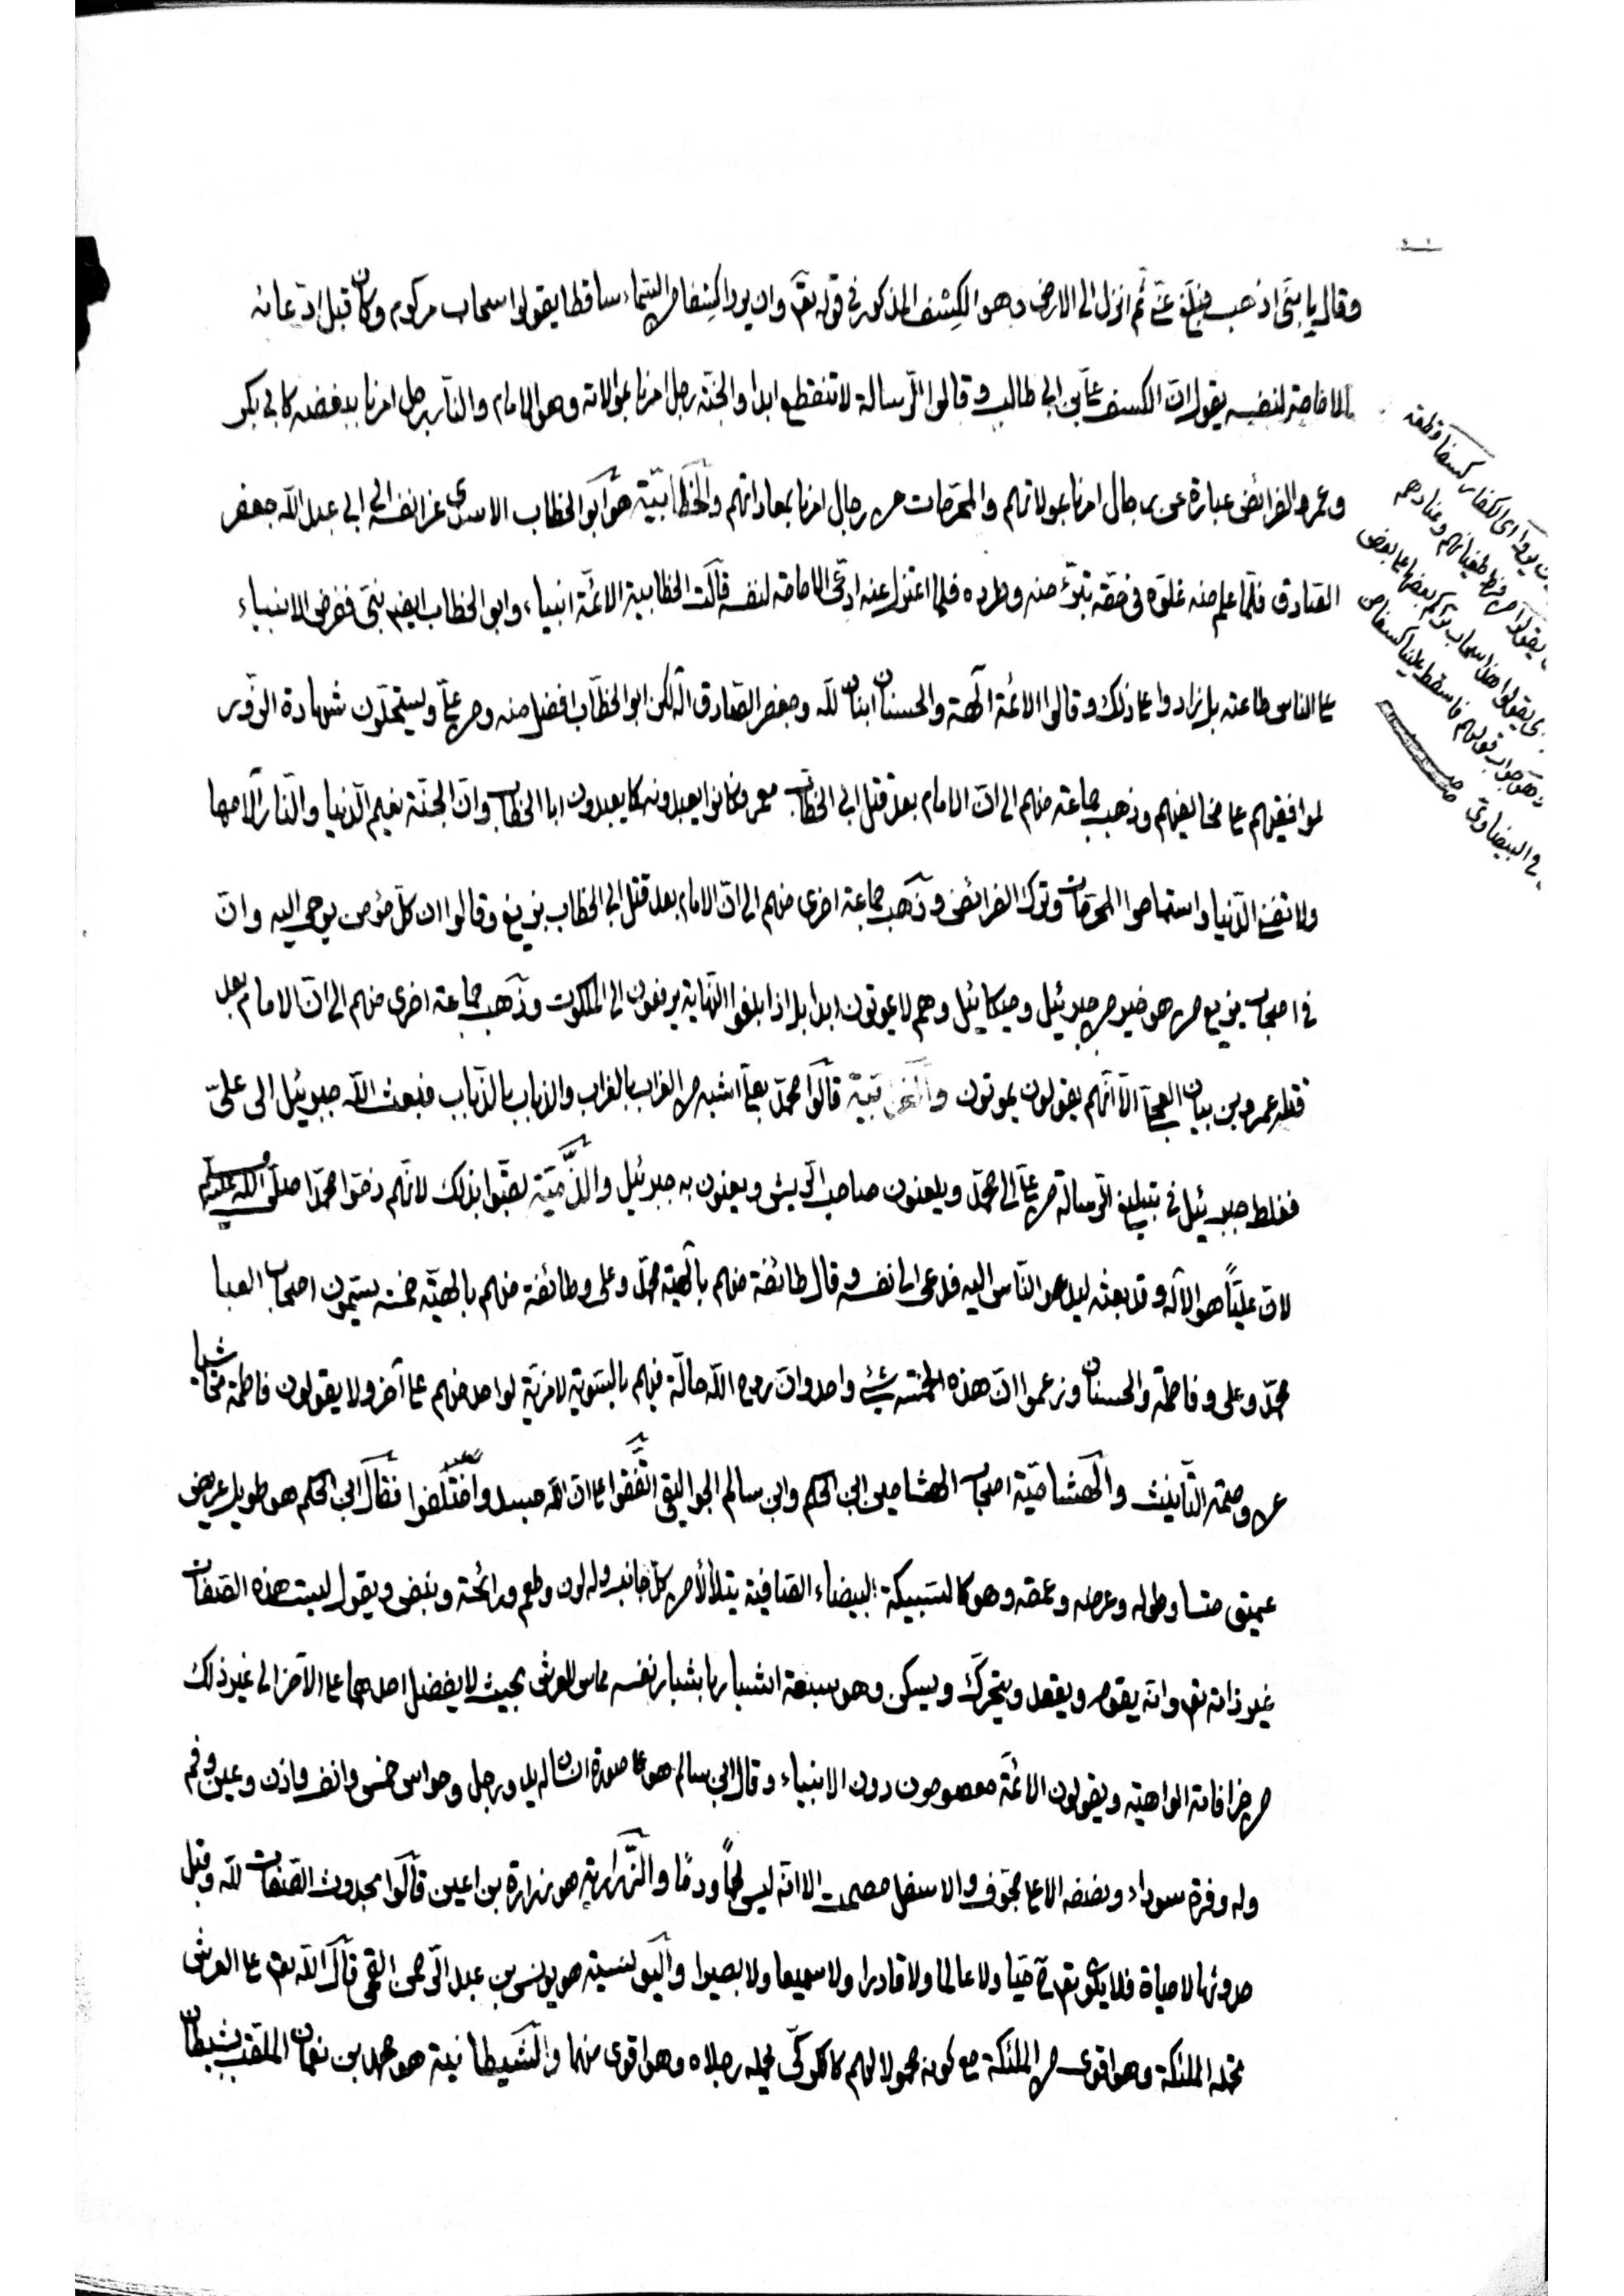 وقال يا بنى اذهب فبلغ عنى ثم انزل الى الارض وهو الكسف المذكور فى قوله تع وان يروا كسفا من السماء ساقطا يقولوا سحاب مركوم وكان قبل ادعائه
الامامة لنفسه يقول ان الكسف على بن ابى طالب وقالوا الرسالة لا تنقطع ابدا والجنة رجل امرنا بموالاته وهو الامام والنار رجل امرنا ببغضه كابى بكر
وعمر والفرائض عبارة عن رجال امرنا بموالاتهم والمحرمات من رجال امرنا بمعاداتهم والخطابية هو ابو الخطاب الاسدى عزا نفسه الى ابى عبد الله جعفر
الصادق فلما علم منه غلوه فى حقه تبرّأ منه وطرده فلما اعتزل عنه ادعى الامامة لنفسه قالت الخطابية الائمة انبياء وابو الخطاب ايضم نبى ففرض الانبياء
على الناس طاعته بل زادوا على ذلك وقالوا الائمة آلهة والحسنان ابنان لله وجعفر الصادق اله لكن ابو الخطاب افضل منه ومن على ويستحلون شهادة الزور
لموافقيهم على مخالفيهم وذهب جماعة منهم الى ان الامام بعد قتل ابى الخطاب معمر وكانوا يعبدونه كما يعبدون ابا الخطاب وان الجنة نعيم الدنيا والنار آلامها
ولا تفنى الدنيا واستباحوا المحرمات وترك الفرائض وذهب جماعة اخرى منهم الى ان الامام بعد قتل ابى الخطاب بزيغ وقالوا ان كل مؤمن يوحى اليه وان
فى اصحاب بزيع من هو خير من جبرئيل وميكائيل وهم لا يموتون ابدا بل اذا بلغوا النهاية يرفعون الى الملكوت وذهب جماعة اخرى منهم الى ان الامام بعد
قتله عمرو بن بيان العجلى الا انهم يقولون يموتون والغرابية قالوا محمد بعلى اشبه من الغراب بالغراب والذباب بالذباب فبعث الله جبرئيل الى علىّ
فغلط جبرئيل فى تبليغ الرسالة من على الى محمد ويلعنون صاحب الريش ويعنون به جبرئيل والذّمّيّة لقبوا بذلك لانهم ذموا محمدا صلى الله عليه
لان علياً هو الاله وقد بعثه ليدعو الناس اليه فدعى الى نفسه وقال طائفة منهم بآلهية محمد وعلى وطائفة منهم بالهية خمسة يسمون اصحاب العبا
محمد وعلى وفاطمة والحسنان وزعموا ان هذه الخمسة شئ واحد وان روح الله حالة فيهم بالسوية لا مزية لواحد منهم على آخر ولا يقولون فاطمة تحاشيا
عن وصمة التأنيث والهشامية اصحاب الهشامين ابن الحكم وابن سالم الجواليقى اتفقوا على ان الله جسد واختلفوا فقال ابن الحكم هو طويل عريض
عميق متساو طوله وعرضه وعمقه وهو كالسبيكة البيضاء الصافية يتلألأ من كل جانب وله لون وطعم ورائحة ونبض ويقول ليست هذه الصفات
غير ذاته تع وانه يقوم ويقعد ويتحرك ويسكن وهو سبعة اشبار باشبار نفسه مماس للعرش بحيث لا يفضل احدهما على الآخر الى غير ذلك
من خرافاته الواهية ويقولون الائمة معصومون دون الانبياء وقال ابن سالم هو على صورة انسان له يد ورجل وحواس خمس وانف واذن وعين وفم
وله وفرة سوداء ونصفه الاعلى مجوف والاسفل مصمت الا انه ليس لحماً ودمًا والزرارية هو زرارة بن اعين قالوا بحدوث الصفات لله وقبل
حدوثها لا حياة فلا يكون تع ح حيا ولا عالما ولا قادرا ولا سميعا ولا بصيرا واليونسية هو يونس بن عبد الرحمن القمى قال الله تع على العرش
تحمله الملئكة وهو اقوى من الملئكة مع كونه محمولا لهم كالكركى يحمله رجلاه وهو اقوى منهما والشيطانية هو محمد بن نعمان الملقب بشيطان
يروا اى الكفار كسفا قطعة
يقولوا من فرط طغيانهم وعنادهم
يقولوا هذا سحاب تراكم بعضها على بعض
وهو جواب قولهم فاسقط علينا كسفا من
فى البيضاوى